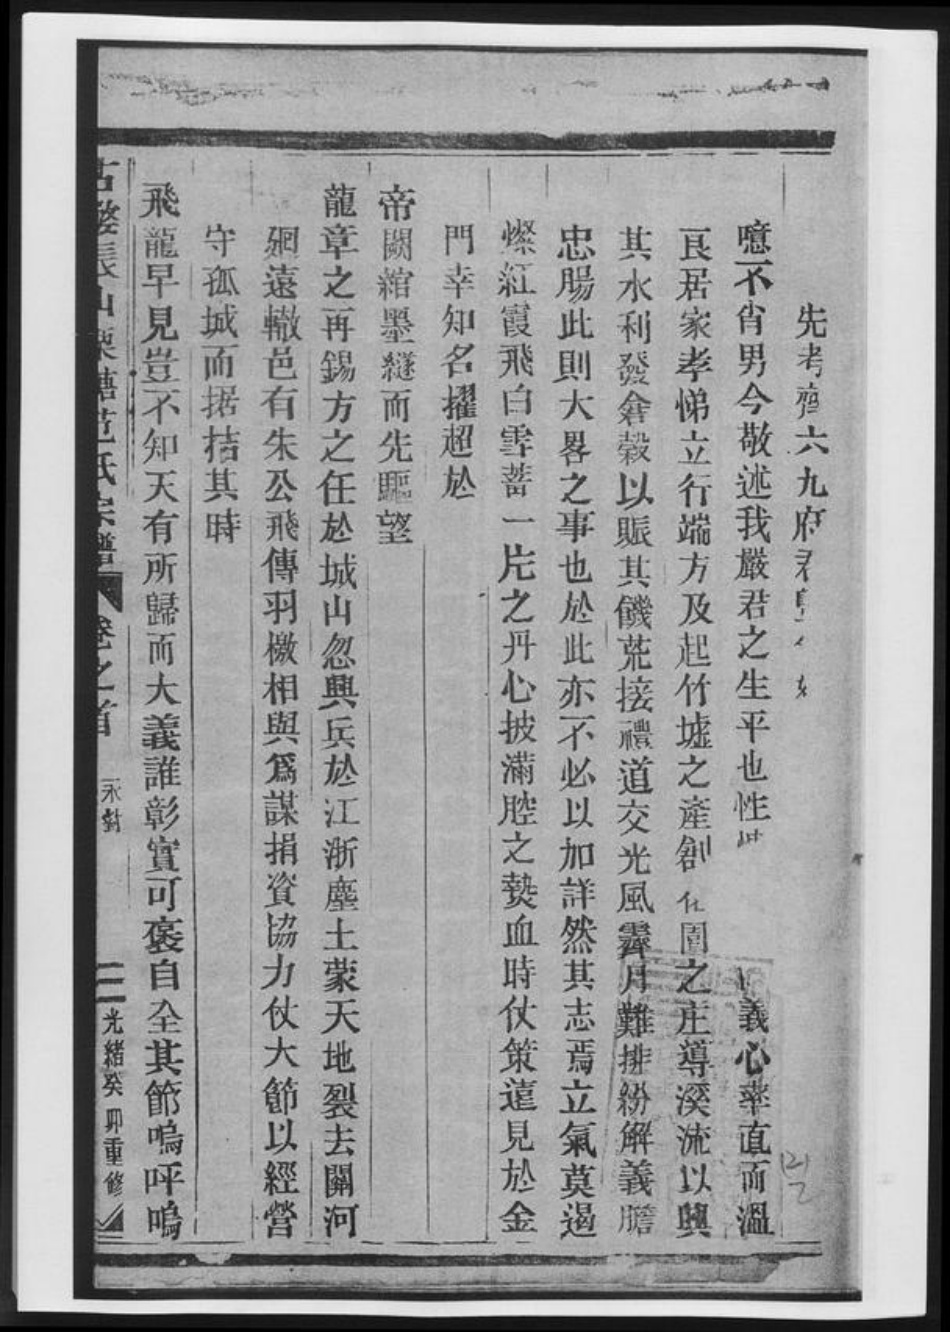 先考齊六九府君
噫不肖男今敬述我嚴君之生平也性 義心率直而溫
良居家孝悌立行端方及起竹墟之產創 圍之庄導溪流以興
其水利發倉穀以賑其饑荒接禮道交光風霽月難排紛解義膽
忠腸此則大畧之事也於此亦不必以加詳然其志焉立氣莫遏
燦紅霞飛白雪蓄一片之丹心披滿腔之熱血時仗策遠見於金
門幸知名擢超於
帝闕綰墨繸而先驅望
龍章之再錫方之任於城山忽興兵於江浙塵土蒙天地裂去關河
迴遠轍邑有朱公飛傳羽檄相與爲謀捐資協力仗大節以經營
守孤城而拮其時
飛龍早見豈不知天有所歸而大義誰彰實可褒自全其節嗚呼嗚
古婺長山栗塘范氏宗譜 卷之首 永對 二 光緒癸卯重修